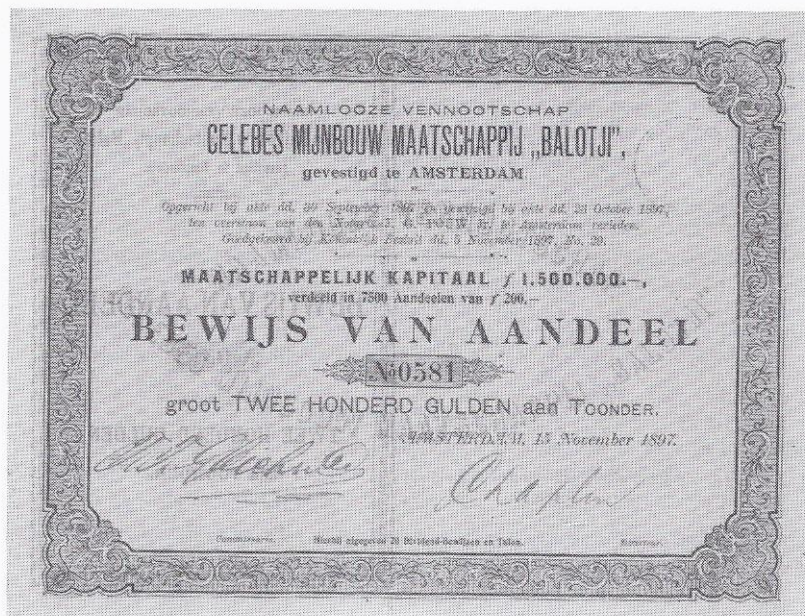 NAAMLOOZE VENNOOTSCHAP
CELEBES MIJNBOUW MAATSCHAPPIJ „BALOTJI”,
gevestigd te AMSTERDAM
Opgericht bij akte dd. 30 September en gewijzigd bij akte dd. 23 October 1897,
ten overstaan van den Notaris te Amsterdam verleden.
Goedgekeurd bij Koninklijk Besluit dd. 5 November 1897, No. 29.
MAATSCHAPPELIJK KAPITAAL ƒ 1.500.000.—,
verdeeld in 7500 Aandeelen van ƒ 200.—
BEWIJS VAN AANDEEL
No 0581
groot TWEE HONDERD GULDEN aan TOONDER.
AMSTERDAM, 15 November 1897.
Chaplin
Commissaris. Hierbij afgegeven 20 Dividend-Bewijzen en Talon. Directeur.